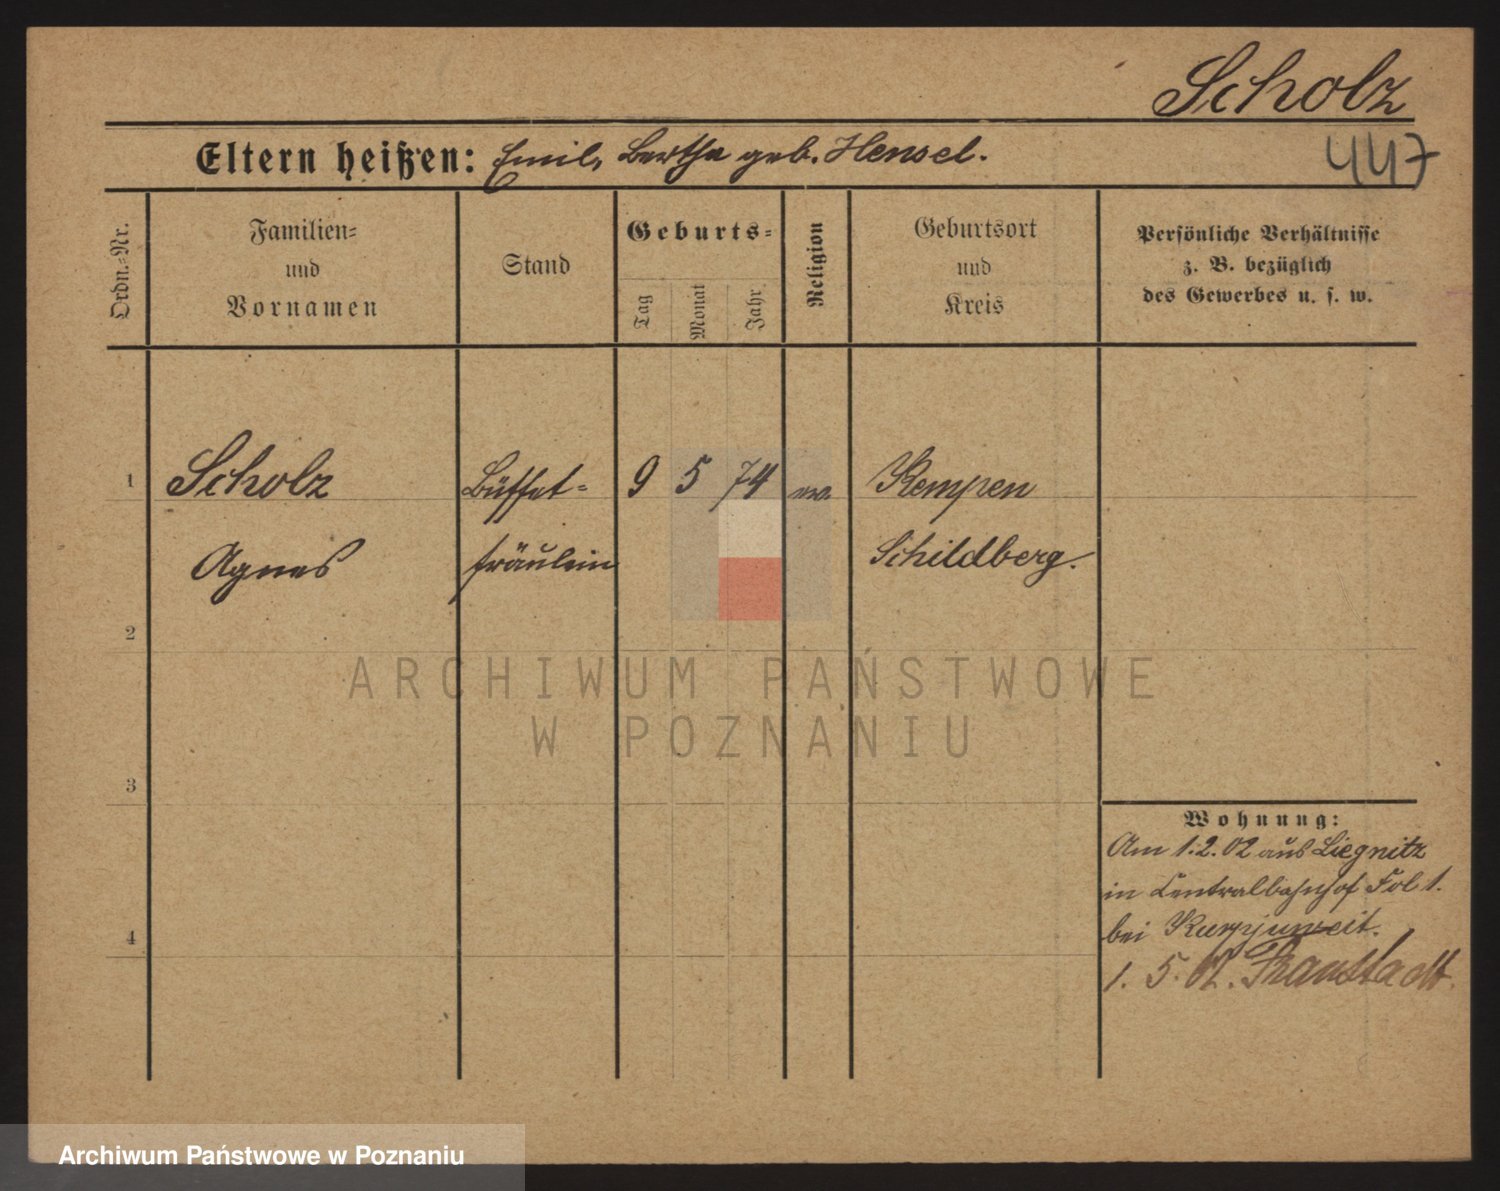 Scholz
Eltern heißen: Emil, Bertha geb. Hensel.
447
Ordn.-Nr.
Familien-
und
Vornamen
Stand
Geburts-
Tag
Monat
Jahr
Religion
Geburtsort
und
Kreis
Persönliche Verhältnisse
z. B. bezüglich
des Gewerbes u. s. w.
1
Scholz
Büffet-
9 5 74
ev.
Kempen
Agnes
fräulein
Schildberg.
2
ARCHIWUM PAŃSTWOWE
W POZNANIU
3
Wohnung:
Am 1.2.02 aus Liegnitz
in Centralbahnhof Fol 1.
4
bei
1. 5. 02. Fraustadt.
Archiwum Państwowe w Poznaniu